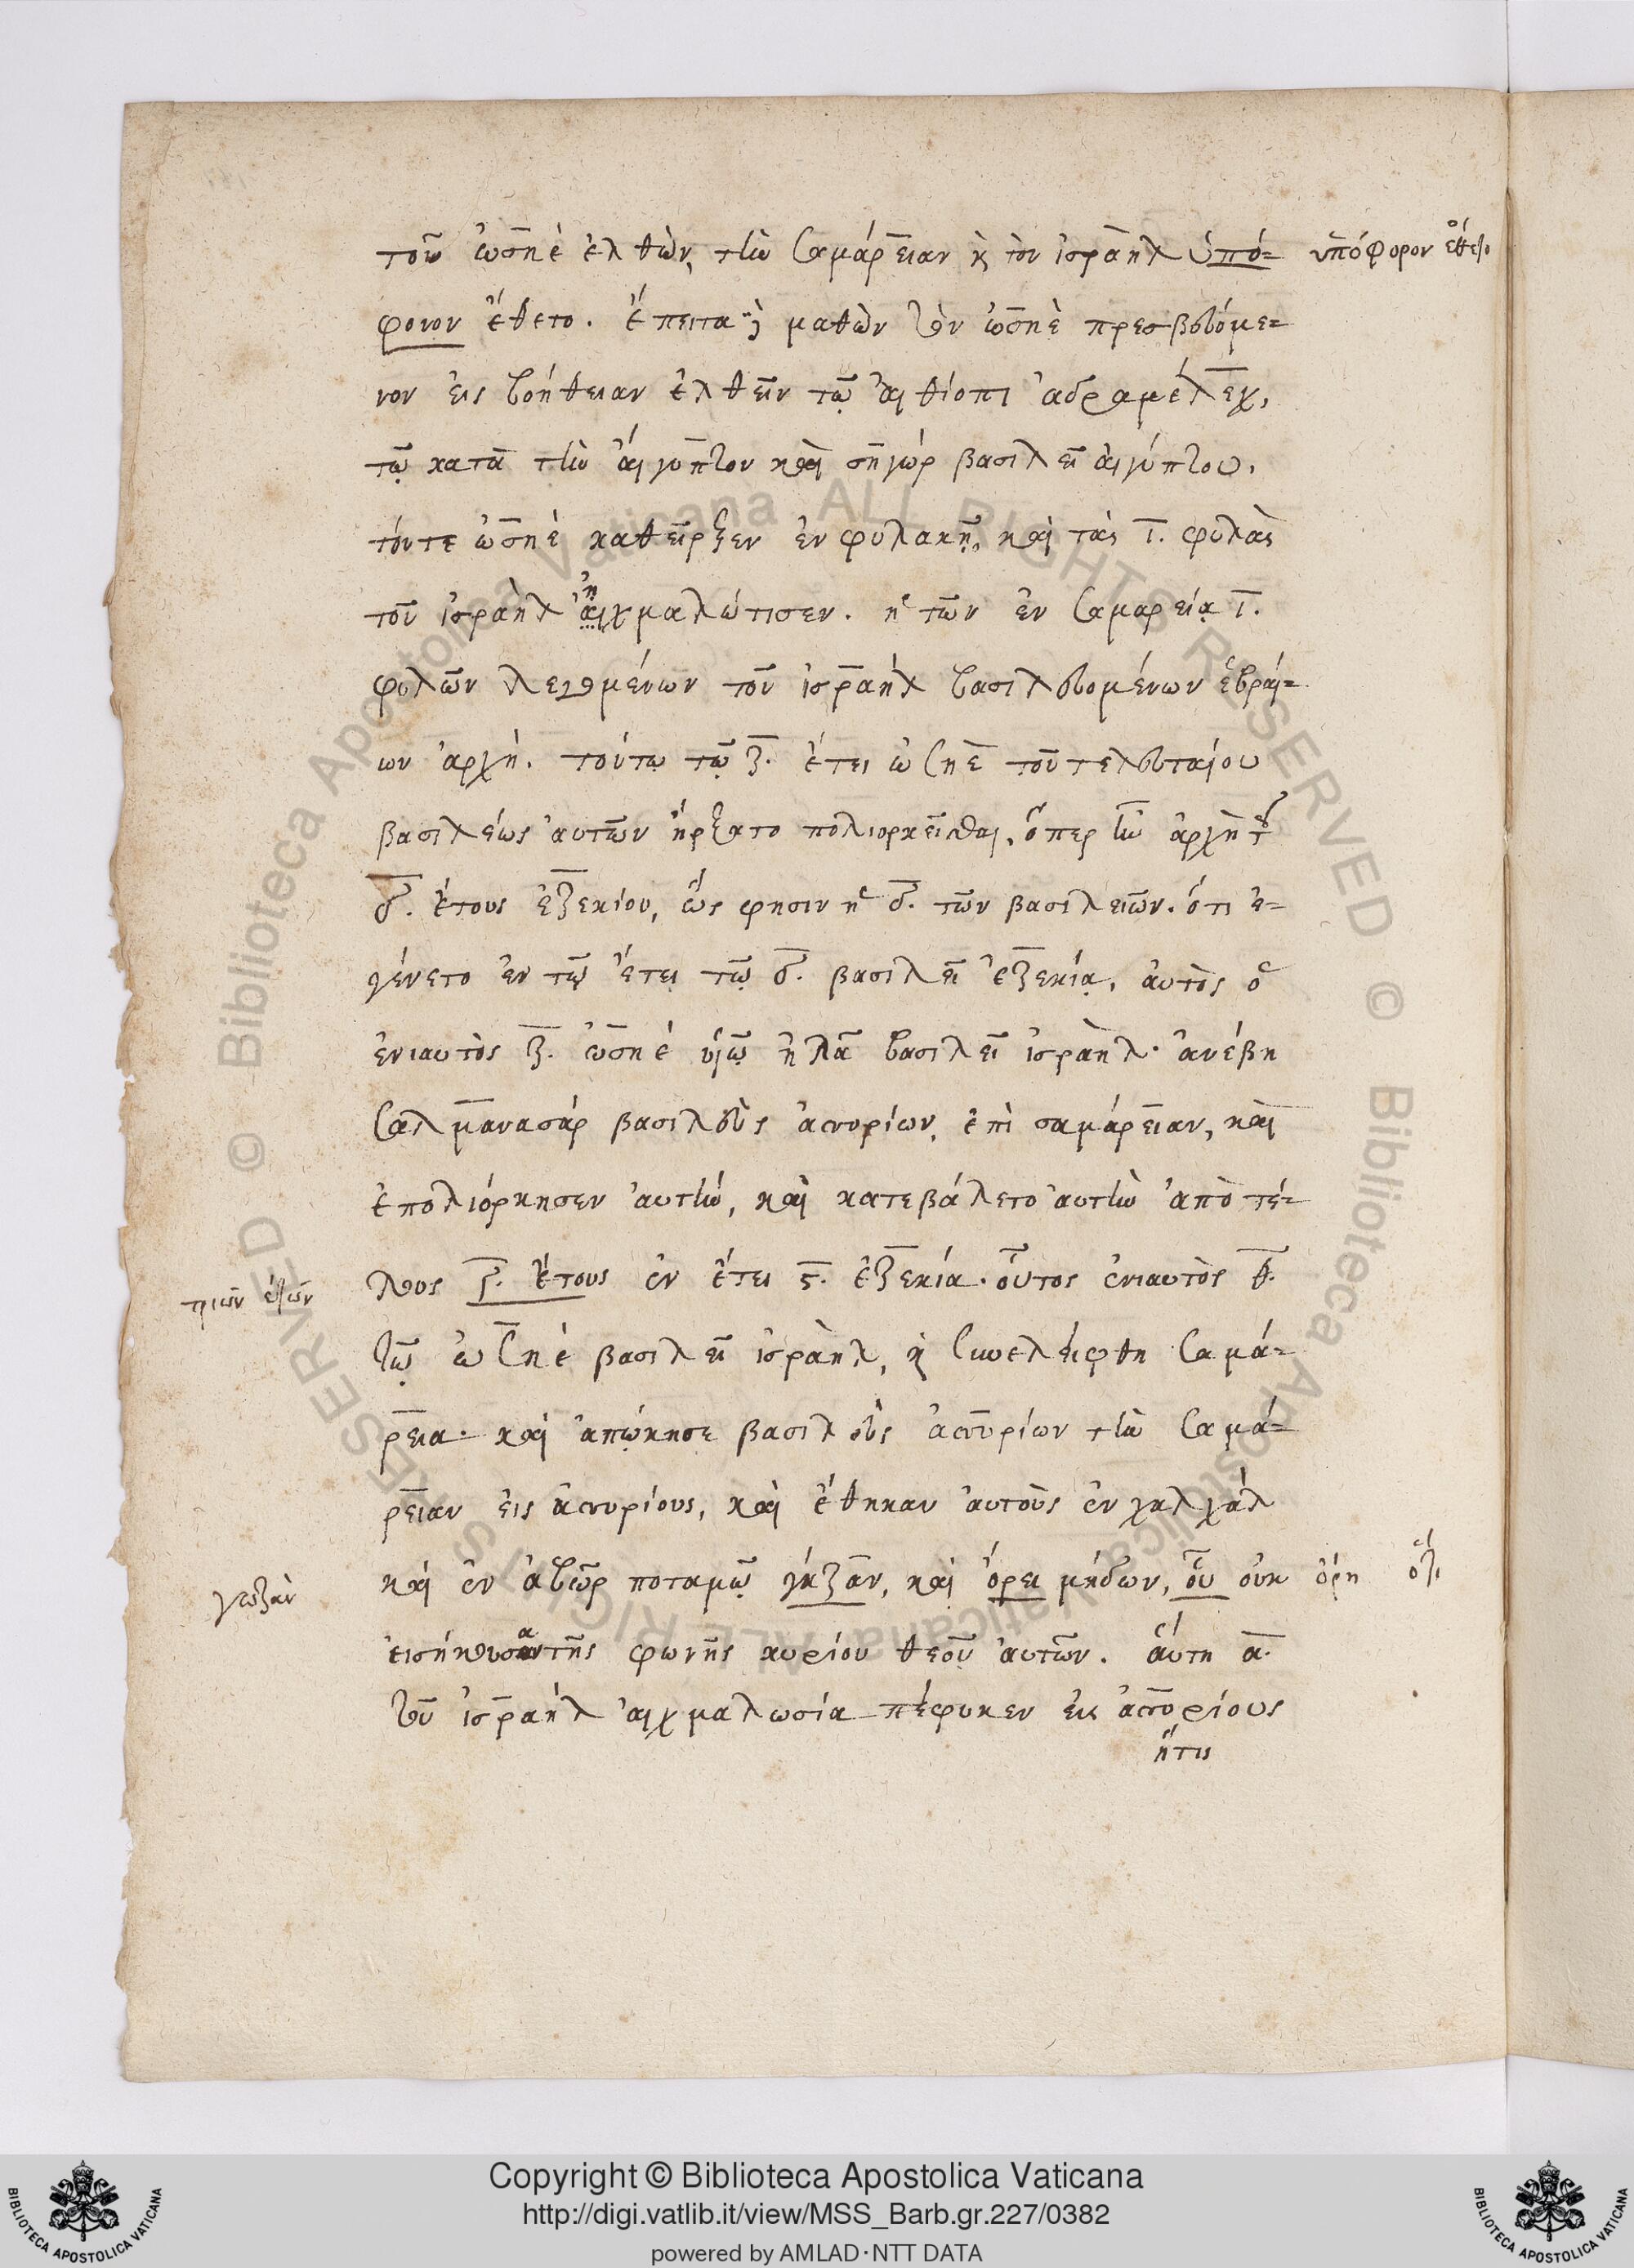 τοῦ ὠσηὲ ἐλθὼν, τὴν Σαμάρειαν κ̀ τὸν ἰσραὴλ ὑπό= ὑπόφορον ἔθετο
φονον ἔθετο. ἔπειτα μαθὼν τὸν ὠσηὲ πρεσβευόμε=
νον εἰς βοήθειαν ἐλθεῖν τῷ αἰθίοπι ἀδραμέλεχ,
τῷ κατὰ τὴν αἴγυπτον καὶ σηγὼρ βασιλεῖ αἰγύπτου.
τόντε ὠσηὲ καθεῖρξεν ἐν φυλακῇ, καὶ τὰς ι. φυλὰς
τοῦ ἰσραὴλ αἰχμαλώτισεν. ἡ τῶν ἐν Σαμαρείᾳ ι.
φυλῶν λεγομένων τοῦ ἰσραὴλ βασιλευομένων ἑβραί=
ων ἀρχή. τούτῳ τῷ ζ. ἔτει ὠσηὲ τοῦ τελευταίου
βασιλέως αὐτῶν ἤρξατο πολιορκεῖσθαι, ὅπερ ἦν ἀρχὴ τοῦ
δ. ἔτους ἐζεκίου, ὥς φησιν ἡ δ. τῶν βασιλειῶν. ὅτι ἐ=
γένετο ἐν τῷ ἔτει τῷ δ. βασιλεῖ ἐζεκίᾳ, αὐτὸς ὁ
ἐνιαυτὸς ζ. ὠσηὲ υἱῷ ἠλᾶ βασιλεῖ ἰσραὴλ. ἀνέβη
Σαλμανασὰρ βασιλεὺς ἀσσυρίων, ἐπὶ σαμάρειαν, καὶ
ἐπολιόρκησεν αὐτὴν, καὶ κατεβάλετο αὐτὴν ἀπὸ τέ=
τριῶν ἐτῶν λους γ. ἔτους ἐν ἔτει ϛ. ἐζεκία. οὗτος ἐνιαυτὸς θ.
τῷ ὠσηὲ βασιλεῖ ἰσραὴλ, κ̀ συνελείφθη Σαμά=
ρεια. καὶ ἀπῴκησε βασιλεὺς ἀσσυρίων τὴν Σαμά=
ρειαν εἰς ἀσσυρίους, καὶ ἔθηκαν αὐτοὺς ἐν χαλχὰλ
γωζὰν καὶ ἐν ἀβῶρ ποταμῷ γάζαν, καὶ ὄρει μήδων, οὗ οὐκ ὄρη ὅτι
εἰσήκουσαν τῆς φωνῆς κυρίου θεοῦ αὐτῶν. αὕτη α.
τοῦ ἰσραὴλ αἰχμαλωσία πέφυκεν εἰς ἀσσυρίους
ἥτις
Copyright © Biblioteca Apostolica Vaticana
http://digi.vatlib.it/view/MSS_Barb.gr.227/0382
powered by AMLAD·NTT DATA